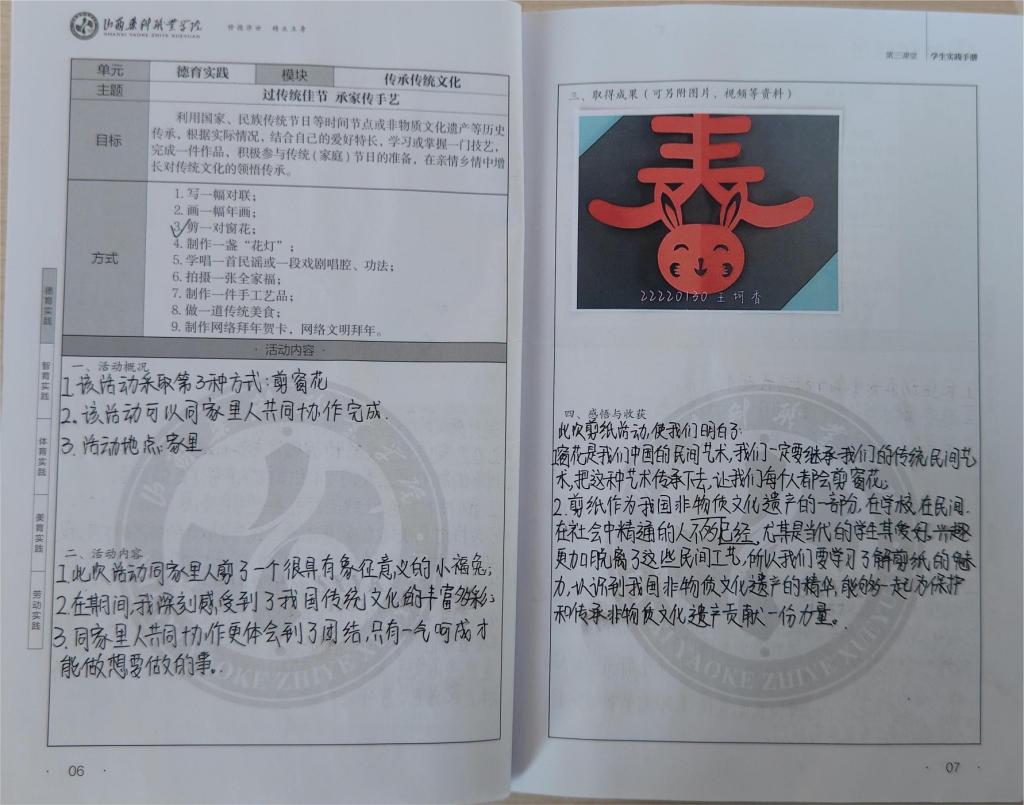 山西药科职业学院
SHANXI YAOKE ZHIYE XUEYUAN
修德济世 精业立身
单元 德育实践 模块 传承传统文化
主题 过传统佳节 承家传手艺
目标
利用国家、民族传统节日等时间节点或非物质文化遗产等历史
传承，根据实际情况，结合自己的爱好特长，学习或掌握一门技艺，
完成一件作品、积极参与传统(家庭)节日的准备，在亲情乡情中增
长对传统文化的领悟传承。
方式
1. 写一幅对联；
2. 画一幅年画；
3. 剪一对窗花；
4. 制作一盏“花灯”；
5. 学唱一首民谣或一段戏剧唱腔、功法；
6. 拍摄一张全家福；
7. 制作一件手工艺品；
8. 做一道传统美食；
9. 制作网络拜年贺卡，网络文明拜年。
· 活动内容 ·
一、活动概况
1.该活动采取第3种方式：剪窗花
2.该活动可以同家里人共同协作完成.
3.活动地点:家里
二、活动内容
1.此次活动同家里人剪了一个很具有象征意义的小福兔;
2.在期间,我深刻感受到了我国传统文化的丰富多彩;
3.同家里人共同协作更体会到了团结,只有一气呵成才
能做想要做的事。
德育实践
智育实践
体育实践
美育实践
劳动实践
· 06 ·
第三课堂 学生实践手册
三、取得成果（可另附图片、视频等资料）
22220130 王珂香
四、感悟与收获
此次剪纸活动,使我们明白了:
1.窗花是我们中国的民间艺术,我们一定要继承我们的传统民间艺
术,把这种艺术传承下去,让我们每个人都会剪窗花;
2.剪纸作为我国非物质文化遗产的一部分,在学校,在民间.
在社会中精通的人不先已经,尤其是当代的学生其爱好、兴趣
更加脱离了这些民间工艺,所以我们要学习了解剪纸的魅
力,认识到我国非物质文化遗产的精华,能够一起为保护
和传承非物质文化遗产贡献一份力量。
· 07 ·